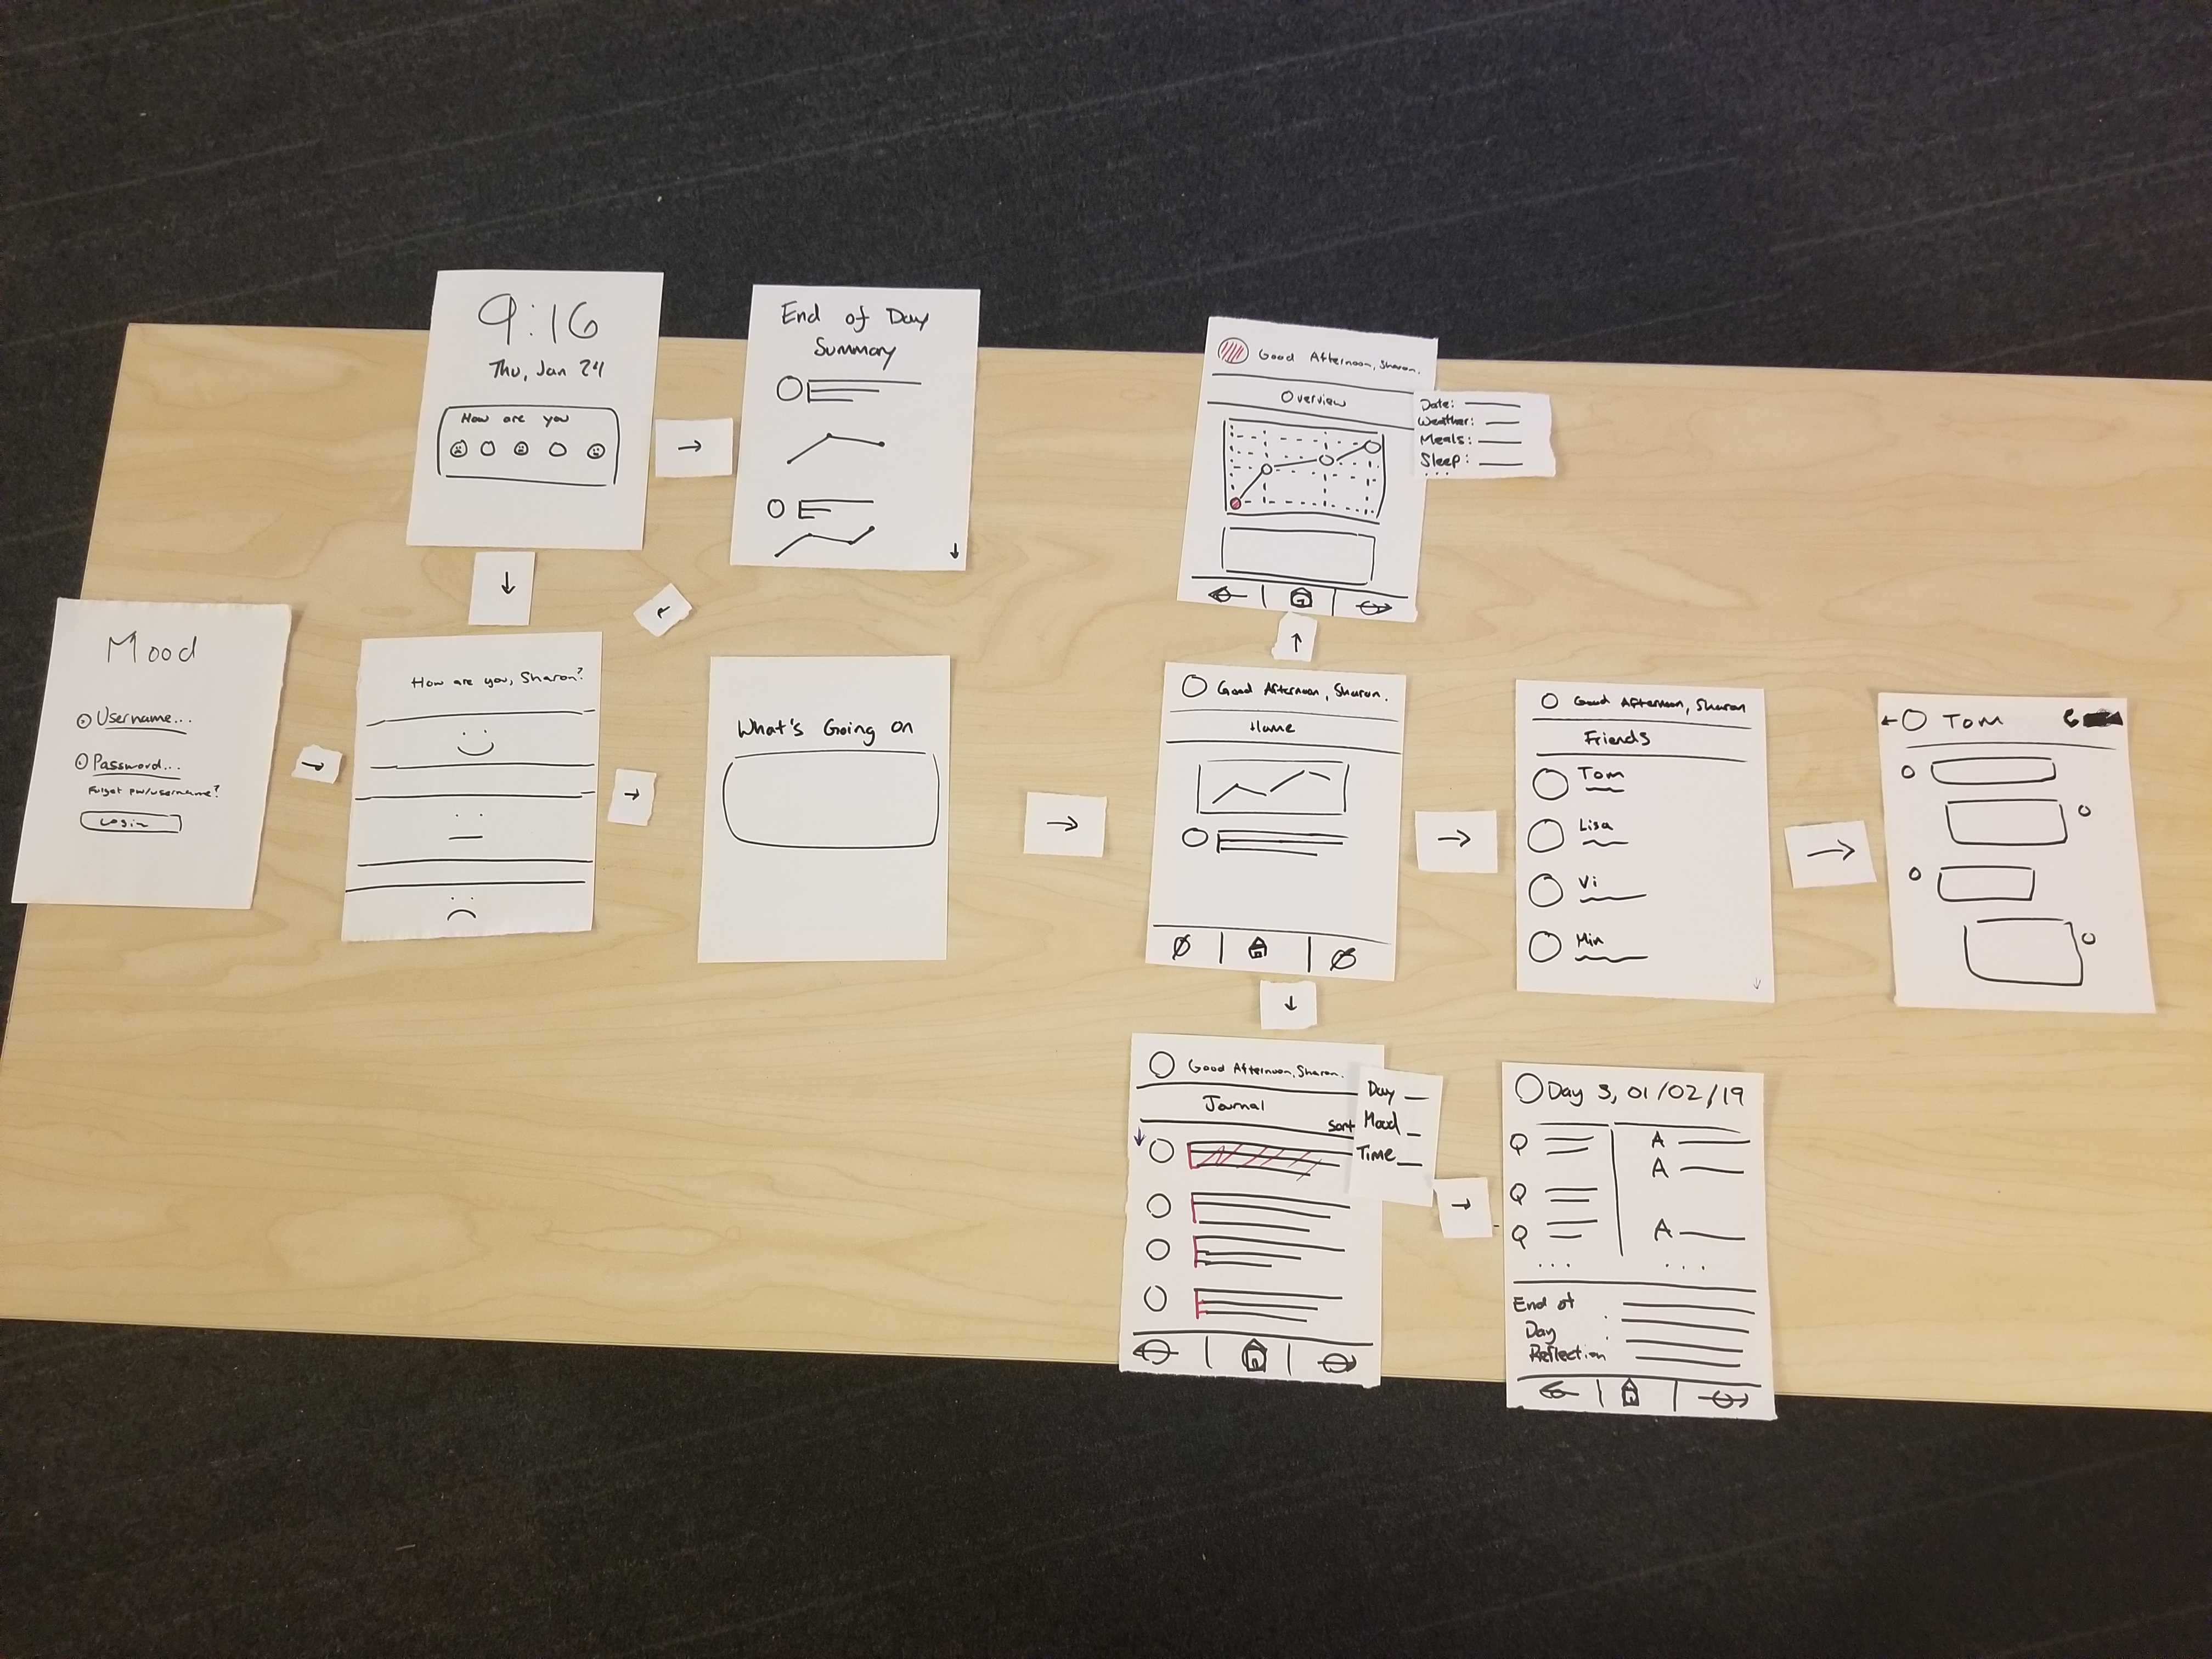 9:16
Thu, Jan 24
How are you
End of Day
Summary
Good Afternoon, Sharon.
Overview
Date:
Weather:
Meals:
Sleep:
...
Mood
Username...
Password...
Forget pw/username?
Login
How are you, Sharon?
What's Going On
Good Afternoon, Sharon.
Home
Good Afternoon, Sharon
Friends
Tom
Lisa
Vi
Min
Tom
Good Afternoon, Sharon.
Journal
Sort
Day
Mood
Time
Day 3, 01/02/19
Q
A
A
Q
Q
A
... ...
End of
Day
Reflection